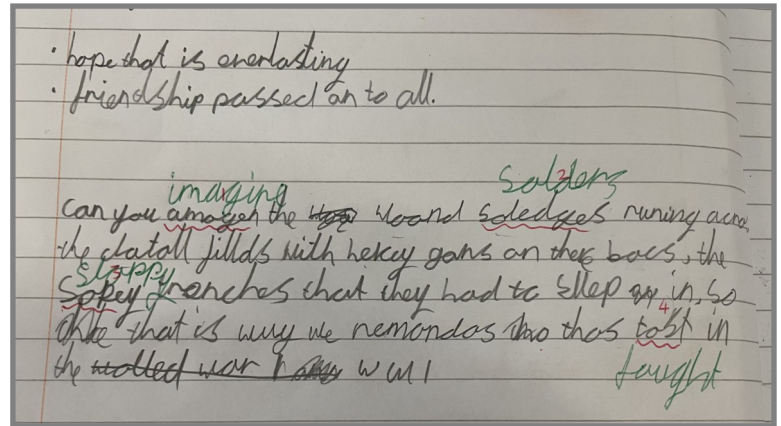 · hope that is everlasting
· friendship passed an to all.
imaging
Solders
2
can you amagen the woand soledges runing acros
the datall fillds with hekey gans an ther bacs, the
sloppy
3
Sopey trenches that they had to sllep in, so
4
that is wuy we remondas tho thos tost in
the wolled war W W 1
faught